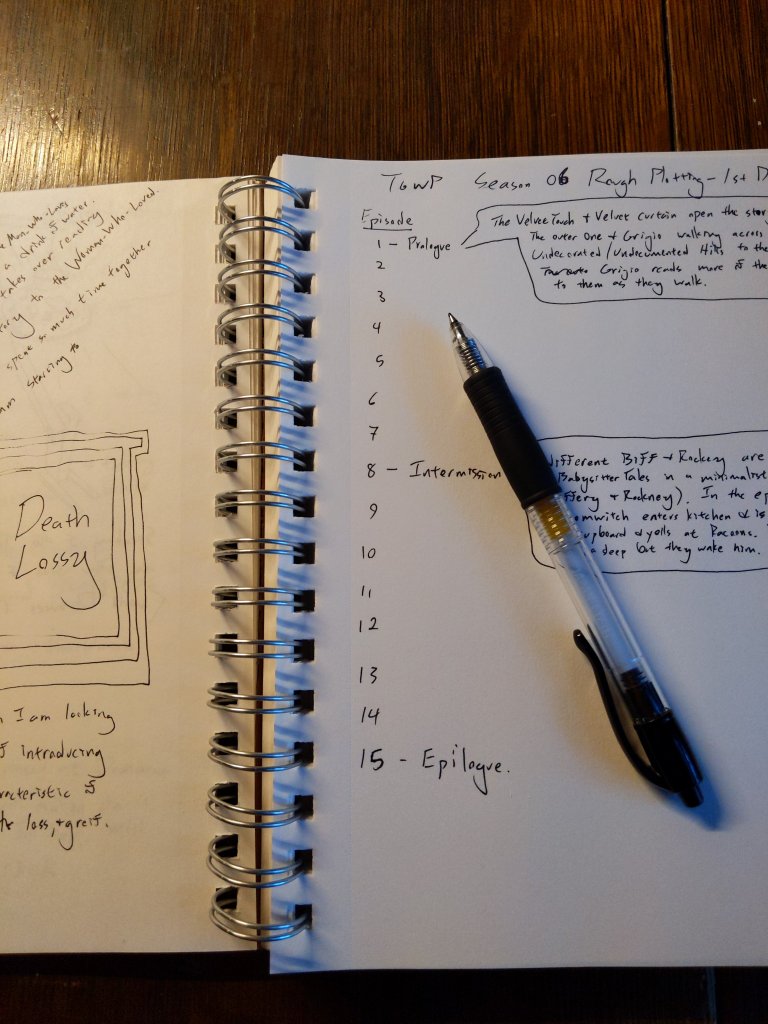 Man-who-Loves
a drink of water.
takes over reading
to the Woman-Who-Loved.
spent so much time together
am starting to
Death
Lossy
I am looking
of introducing
loss, + grief.
TGWP Season 06 Rough Plotting - 1st D
Episode
1 - Prologue
2
3
4
5
6
7
8 - Intermission
9
10
11
12
13
14
15 - Epilogue.
The Velvet Touch & Velvet curtain open the stor
The outer One & Grigio walking across
Undecorated/Undocumented Hills to the
Grigio reads more of the
to them as they walk.
different Biff & Rockey are
Babysitter Tales in a minimalist
ffery & Rockney). In the ep
omwitch enters kitchen & is
upboard & yells at Racoons.
a sleep but they wake him.